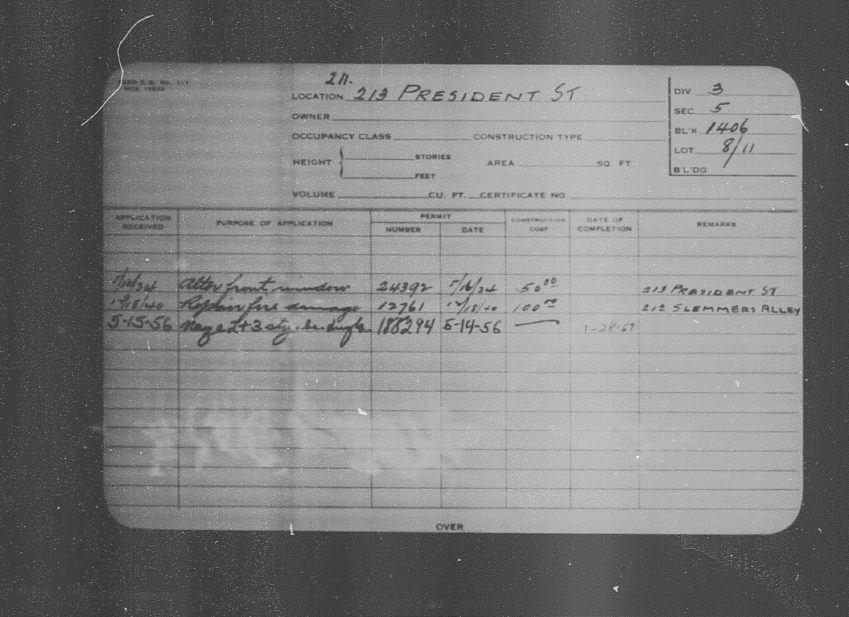 211.
LOCATION 213 PRESIDENT ST
DIV. 3
SEC. 5
BL'K 1406
LOT 8/11
B'L'DG
OWNER
OCCUPANCY CLASS CONSTRUCTION TYPE
HEIGHT STORIES FEET AREA SQ. FT.
VOLUME CU. FT. CERTIFICATE NO.
APPLICATION RECEIVED PURPOSE OF APPLICATION PERMIT NUMBER DATE CONSTRUCTION COST DATE OF COMPLETION REMARKS
Alter front window 24392 5/16/24 50 00 213 PRESIDENT ST
12/18/40 Repair fire damage 12761 12/18/40 100 00 212 SLEMMERS ALLEY
5-15-56 2+3 sty. 188294 5-14-56 1-28-57
OVER